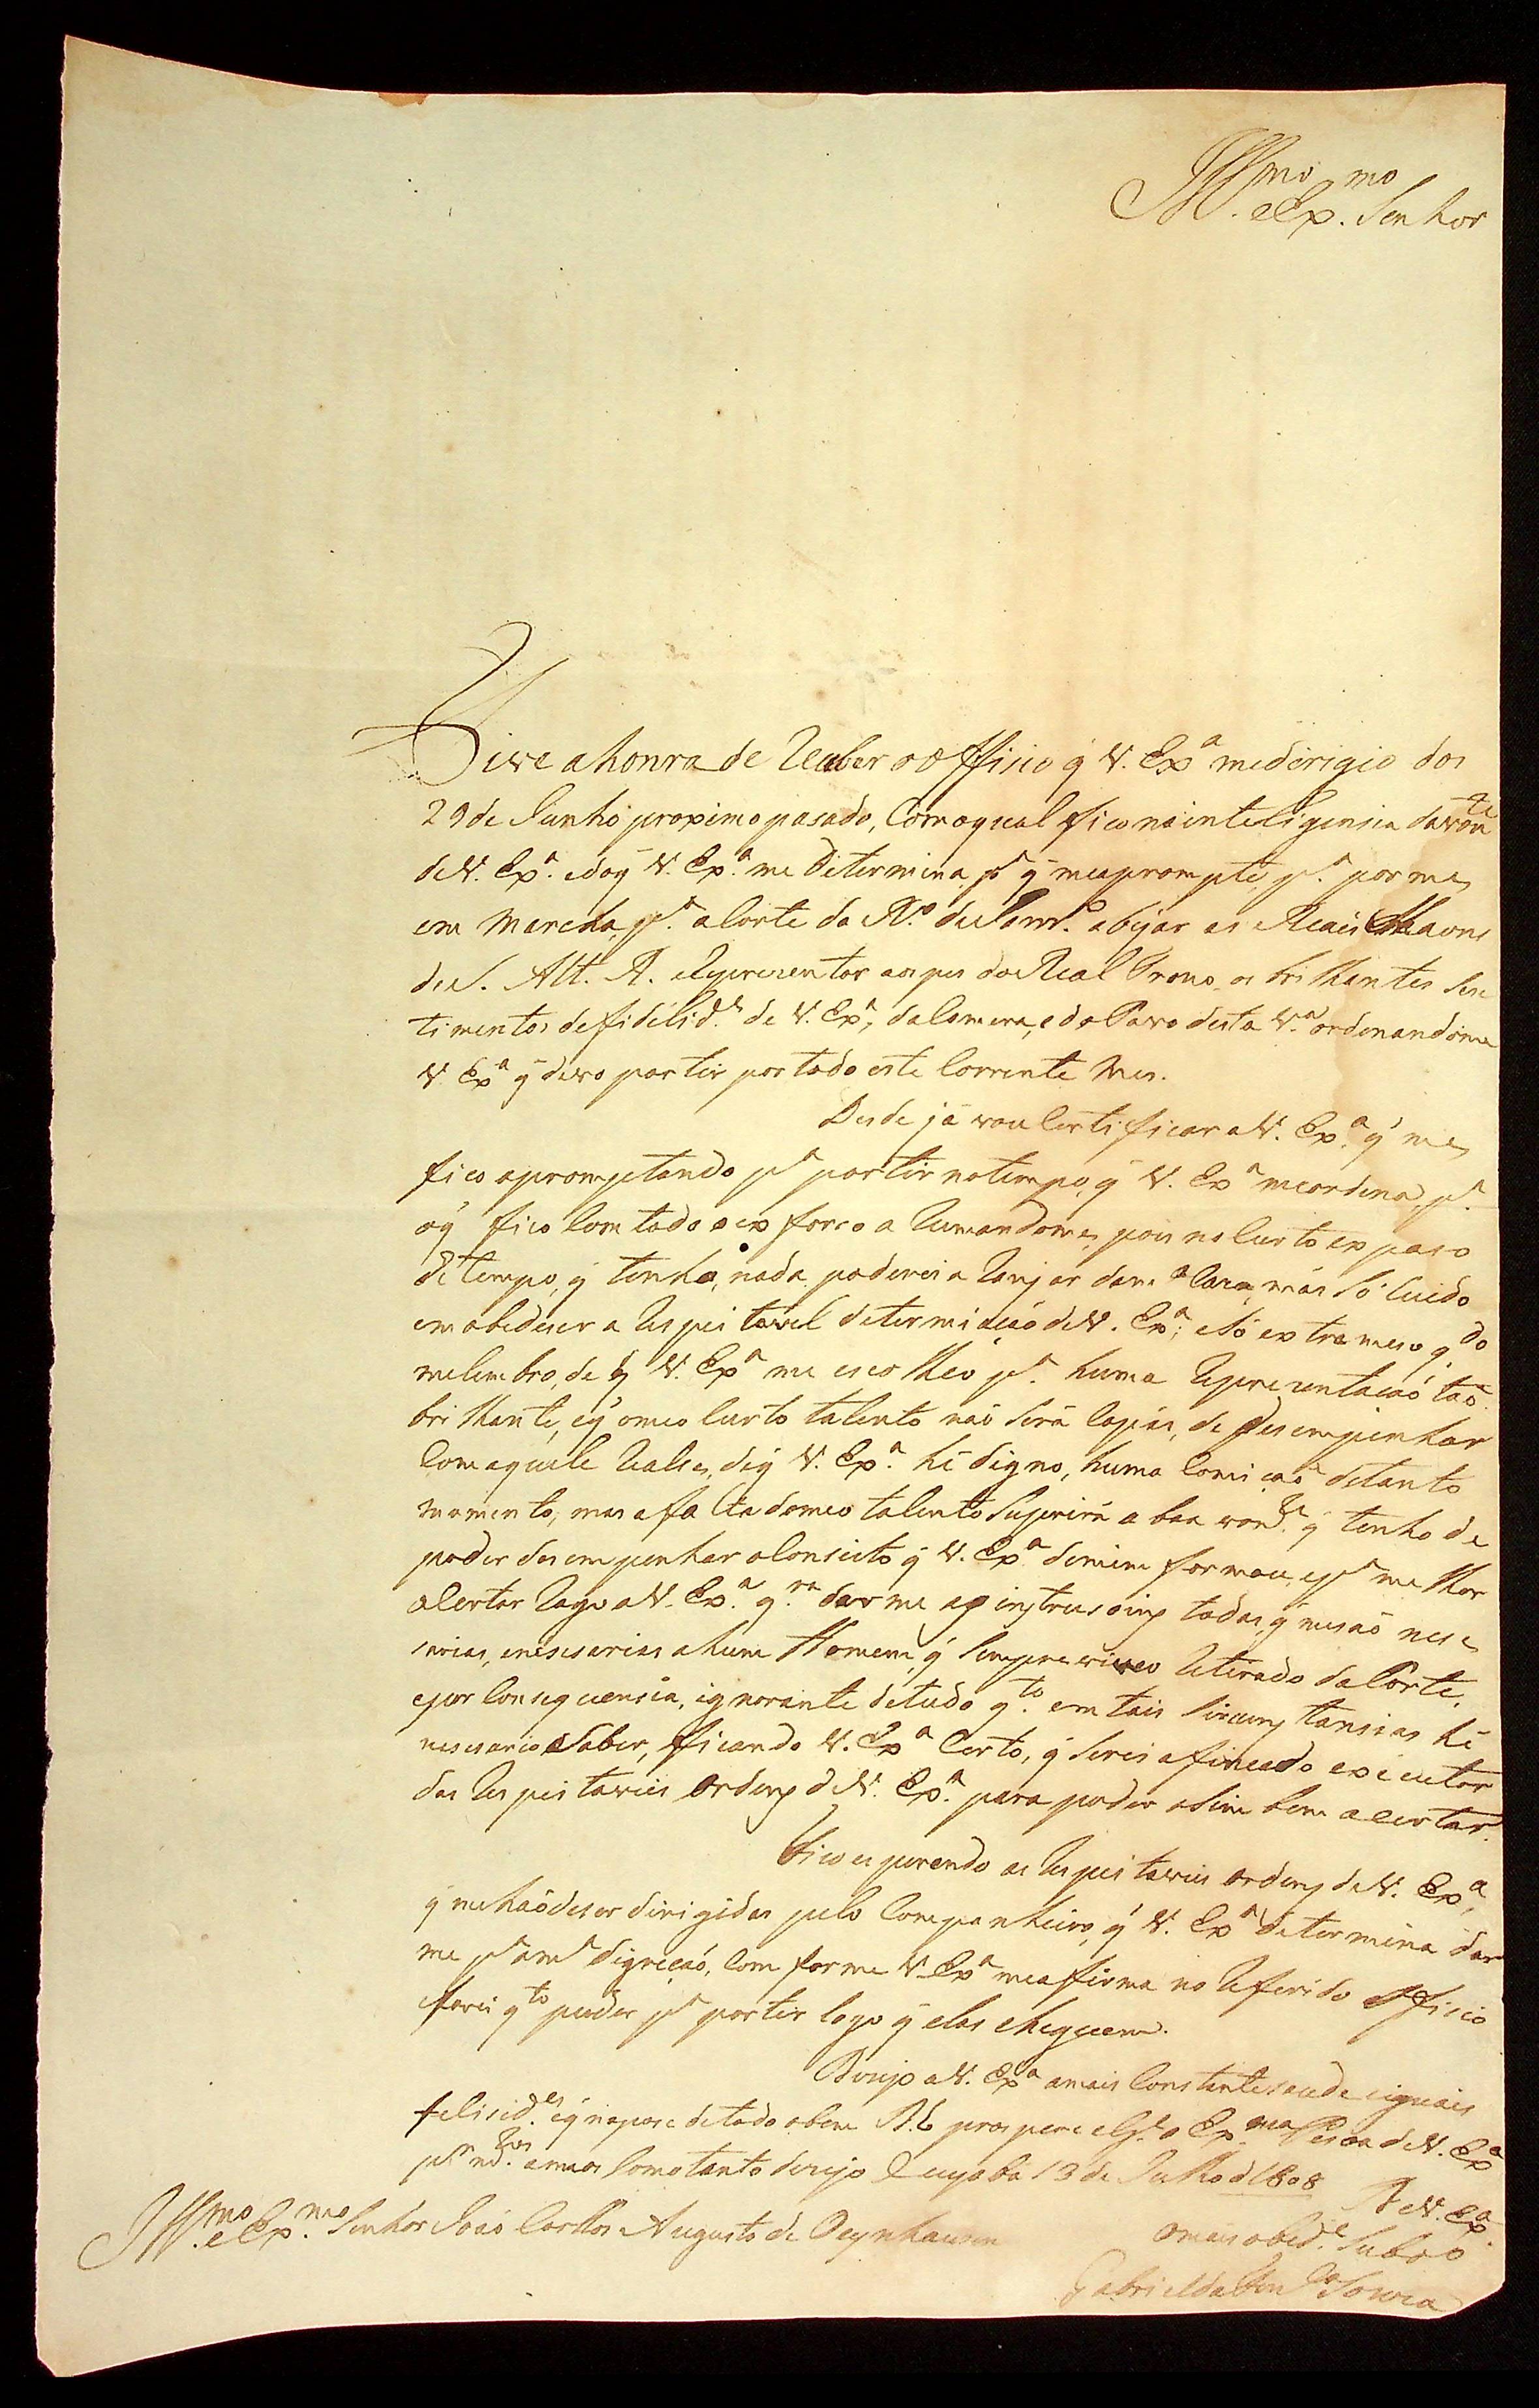 Ill.mo e Ex.mo Senhor
Tive ahonra de Receber o offisio q̃ V. Ex.a medirigio dos
29 de Junho proximo pasado, Comoqual fico nainteligensia davon.te
deV. Ex.a edoq̃ V. Ex.a me Determina p.a q̃ meaprompte, p.a porme
em marcha, p.a aCorte do R.o deJanr.o abejar as Reais Maons
deS. Alt. R. eRepresentar aos pes doReal Trono, os brilhantes Sen
timentos defidelid.e de V. Ex.a, daCamera, e do Povo desta V.a ordenandome
V. Ex.a q̃ devo partir por todo este Corrente mes.
Desde já vou Certificar aV. Ex.a q̃ me
fico aprompetando p.a partir notempo, q̃ V. Ex.a meordena, p.a
oq̃ fico Com todo o exforco a Rumandome, pois no Curto expaso
de tempo, q̃ tenho, nada poderei a Ranjar da m.a Caza, más Só Cuido
emobedeser a Respeitavel determinasaó deV. Ex.a; eSó extrameso q.do
melembro, de q̃ V. Ex.a me escolheo p.a huma Representacaó taõ
brilhante, eq̃ omeo Curto talento naó Será Capás, de desempenhar
Com aquele Realse, deq̃ V. Ex.a hé digno, huma Comicaõ detanto
momento, mas afalta domeo talento Suprirá a boa von.de q̃ tenho de
poder desempenhar oConseito q̃ V. Ex.a demim formou, ep.a melhor
aCertar Rogo aV. Ex.a q.ra darme as instrusoins todas, q̃ mesaó nese
sarias, enesesarias ahum Homem, q̃ Sempre viveo Retirado daCorte,
epor Consequensia, ignorante detudo q.to em tais Sircunstansias hé
nesesario Saber, ficando V. Ex.a Certo, q̃ Serei afincado executor
das Respeitaveis Ordens deV. Ex.a para poder aSim bem aCertar.
Fico esperando as Respeitaveis Ordens deV. Ex.a,
q̃ mehaõdeser dirigidas pelo Companheiro, q̃ V. Ex.a determina dar
me p.a am.a digreçaó, Comforme V. Ex.a meafirma no Referido offisio
eFarei q.to puder p.a partir logo q̃ elas cheguem.
Dezejo aV. Ex.a amais Constante saude eiguais
felisid.es eq̃ napose detodo obem D.s prospere eG.e a Ex.ma Pesoa deV. Ex.a
p.r m.tos annos Comotanto dezejo Cuyaba 13 de Julho d 1808
De V. Ex.a
Omais obed.e Subd.o
Gabriel da Fon.ca Souza
Ill.mo e Ex.mo Senhor Joaõ Carlos Augusto de Oeynhausen